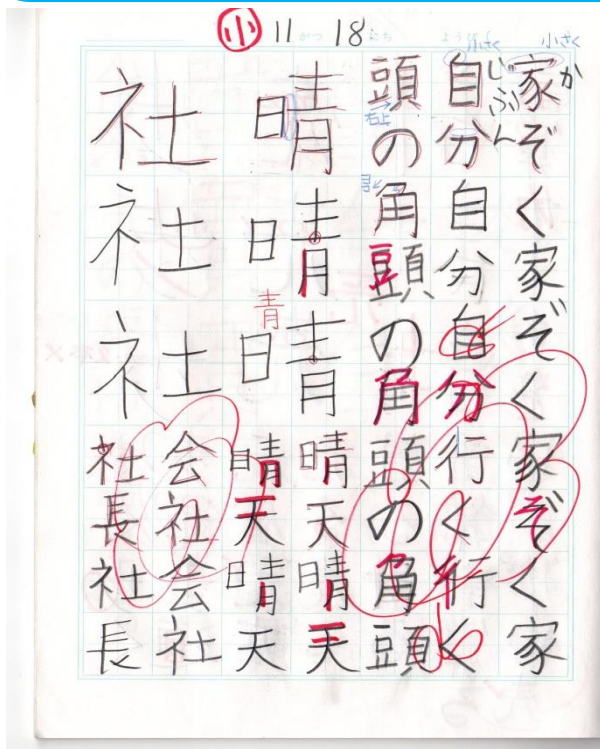 小 11がつ 18にち ようび
小さく
小さく
か
家ぞく家ぞく家ぞく家
じぶん
自分自分自分行く行く
右上
頭の角頭の角頭の角頭
晴晴晴
青
晴天晴天
晴天晴天
社社社
会社会社
社長社長